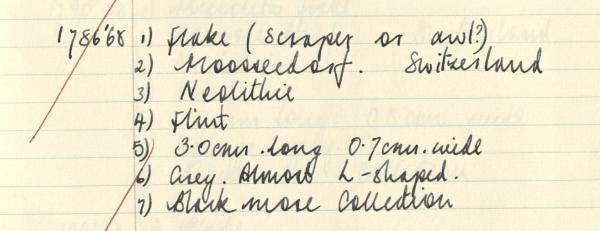 1786'68 1) Flake (Scraper or awl?)
2) Moosseedorf. Switzerland
3) Neolithic
4) Flint
5) 3.0cms. long 0.7cms. wide
6) Grey. Almost L-shaped.
7) Blackmore Collection